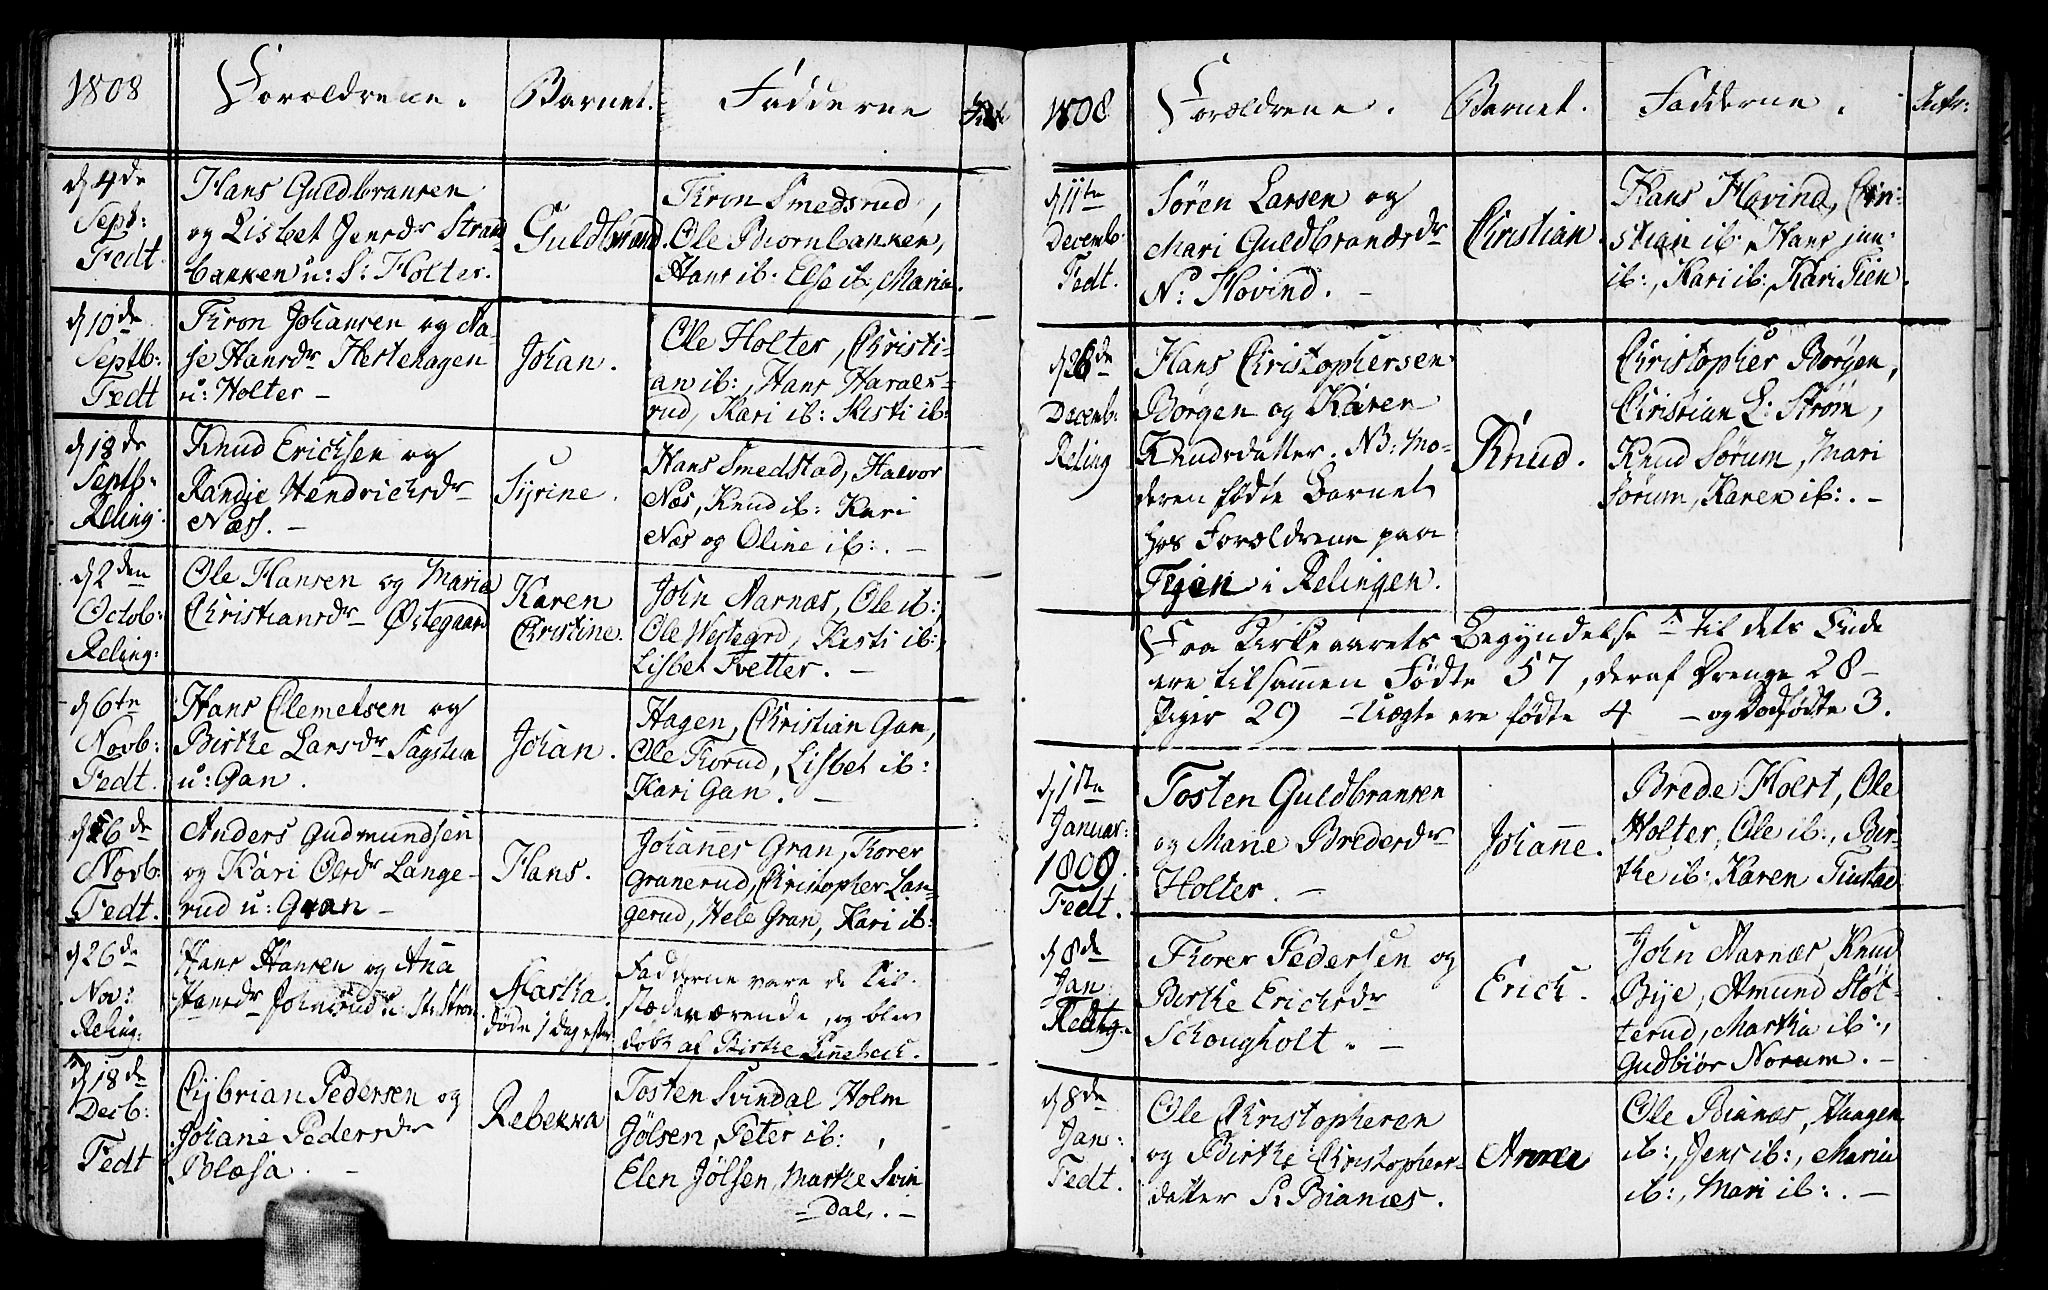 1808
Forældrene.
Barnet.
Fadderne
d 4de
Sept:
Fedt.
Hans Guldbransen
og Lisbet Jensdr Strand
bakken u: S: Holter.
Guldbrand
Thron Smedsrud,
Ole Biørnbakken,
Hans ib: Else ib:, Maria.
d 10de
Septb:
Fedt
Thron Johansen og Aa-
se Hansdr Hestehagen
u: Holter –
Johan.
Ole Holter, Christi-
an ib:, Hans Haraes-
rud, Kari ib: Kisti ib:
d 18de
Septb:
Reling:
Knud Erichsen og
Randje Hendrichsdr
Næss. –
Syrine.
Hans Smedstad, Halvor
Næs, Knud ib: Kari
Næs og Oline ib:. –
d 2den
Octob:
Reling:
Ole Hansen og Maria
Christiansdr Østegaard
Karen
Christine.
John Narnæs, Ole ib:,
Ole Westegrd, Kisti ib:,
Lisbet Tvetter. –
d 6te
Novb:
Fedt.
Hans Clemetsen og
Birthe Larsdr Sagstuen
u: Gan.
Johan.
Hagen, Christian Gan,
Ole Thorud, Lisbet ib:
Kari Gan. –
d 26de
Novb:
Fedt.
Anders Gudmundsen
og Kari Olsdr Lange-
rud u: Gran –
Hans.
Johannes Gran, Thorer
Granerud, Christopher Lan-
gerud, Hele Gran, Kari ib:
d 26de
Nov:
Reling:
Hans Hansen og Anna
Hansdr Johnsrud u: St: Strøm
Martha.
døde 1 Dag efter
Fadderne vare de til-
stedeværende, og blev
døbt af Birthe Linnebech.
d 18de
Decb:
Fedt
Cijbrian Pedersen og
Johane Pedersdr
Blæsa. –
Rebekka
Tosten Svindal Holm
Jølsen, Peter ib:,
Elen Jølsen, Marthe Svin
– dal. –
1808
Forældrene.
Barnet.
Fadderne.
Intr:
d 11te
Decemb:
Fedt.
Søren Larsen og
Mari Guldbrandsdr
N: Hovind. –
Christian.
Hans Hovind, Chri-
stian ib:, Hans jun:
ib:, Kari ib:, Kari Tien.
d 26de
Decemb:
Reling
Hans Christophersen
Børgen og Karen
Knudsdatter. NB: Mo-
deren fødte Barnet
hos Forældrene paa
Tejen i Relingen.
Knud.
Christopher Børgen,
Christian L: Strøm,
Knud Sørum, Mari
Sørum, Karen ib:. –
Fra Kirkeaarets Begyndelse til dets Ende
ere tilsammen Fødte 57, deraf Drenge 28 –
Piger 29 – Uægte ere fødte 4 – og Dødfødte 3.
d 1ste
Januar:
1809.
Fedt.
Tosten Guldbransen
og Marie Bredesdr
Holter. –
Johanne.
Brede Holst, Ole
Holter, Ole ib:, Bir-
the ib: Karen Tiustad
d 8de
Jan:
Erich.
Thorer Pedersen og
Birthe Erichsdr
Schougholt. –
John Narnæs, Knud
Bije, Amund Sløt-
terud, Martha ib:,
Gudbiør Norum. –
d 8de
Jan:
Fedt.
Ole Christophersen
og Birthe Christophers-
datter S: Bianæs.
Anne
Ole Bianæs, Haagen
ib:, Jens ib:, Maria
ib:, Mari ib:. –